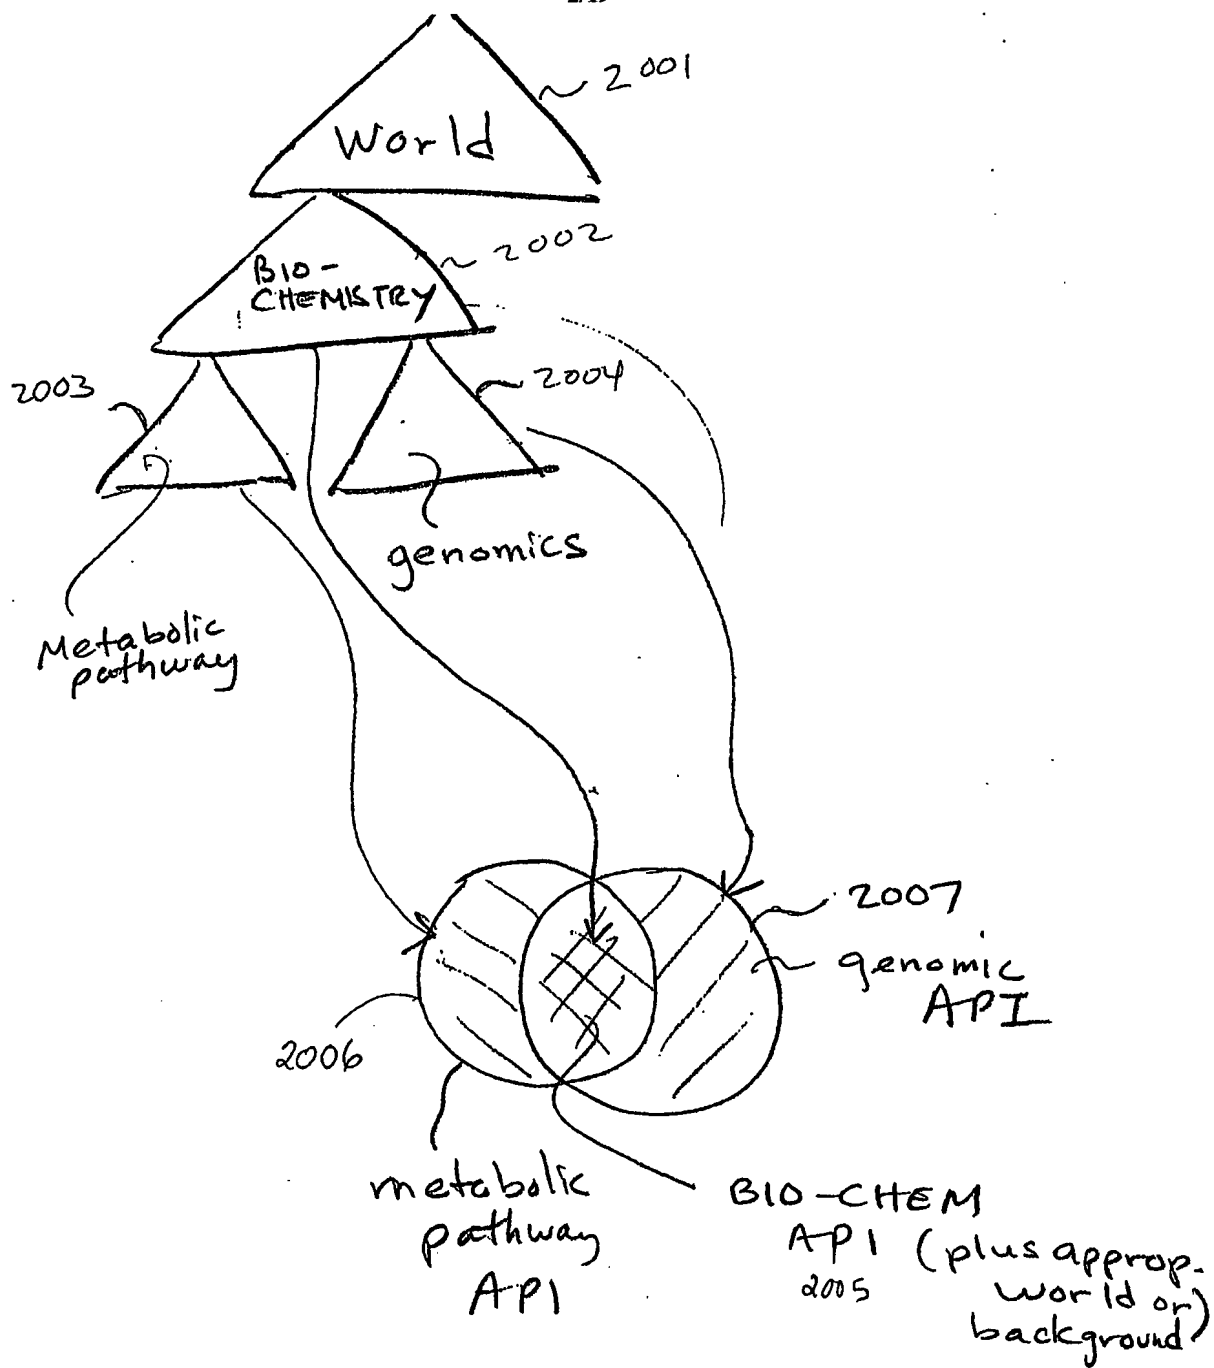 2001
World
2002
BIO-
CHEMISTRY
2003
2004
genomics
Metabolic
pathway
2007
genomic
API
2006
metabolic
pathway
API
BIO-CHEM
API (plus approp.
2005 world or)
background